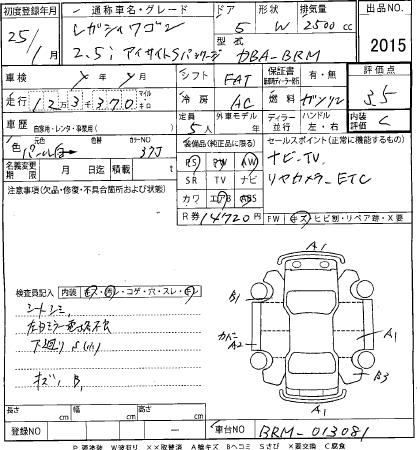 初度登録年月 通称車名・グレード ドア 形状 排気量 出品NO
25/1月 レガシィワゴン 5 W 2500cc
2.5i アイサイトSパッケージ 型式 DBA-BRM 2015
車検 年 月 シフト FAT 保証書 有・無 評価点
走行 12万3千370 マイル キロ 冷房 AC 燃料 ガソリン 3.5
車歴 自家用・レンタ・事業用( ) 定員 5人 外車モデル年 ディーラー 並行 ハンドル 左・右 内装評価 C
色 元色 色替 カラーNO パール白→ 37J
装備品(純正品に限る) セールスポイント(正常に機能するもの)
PS PW AW ナビ・TV
名義変更期限 月 日迄 積載 t SR TV ナビ リヤカメラ ETC
注意事項(欠品・修復・不具合箇所および状態) カワ エアB ABS
R券 14720円 FW キズ・ヒビ割・リペア跡・X要
A1
検査員記入 内装 キズ・コゲ・穴・スレ・
B1
シートシミ
カバー A2 A1
下廻りS
キズ、B1 B3
A1
長さ cm 幅 cm 高さ cm
登録NO 車台NO BRM-013081
P 要塗装 W波有り ××取替済 A線キズ Bヘコミ Sさび ×要交換 C腐食